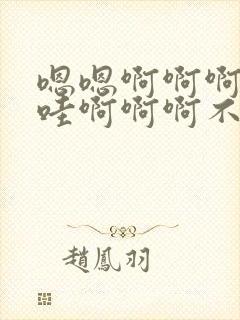 嗯嗯啊啊啊
哇啊啊啊不
趙鳳羽